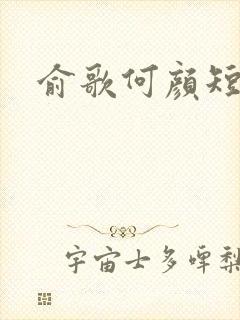 俞歌何颜短
宇宙士多啤梨